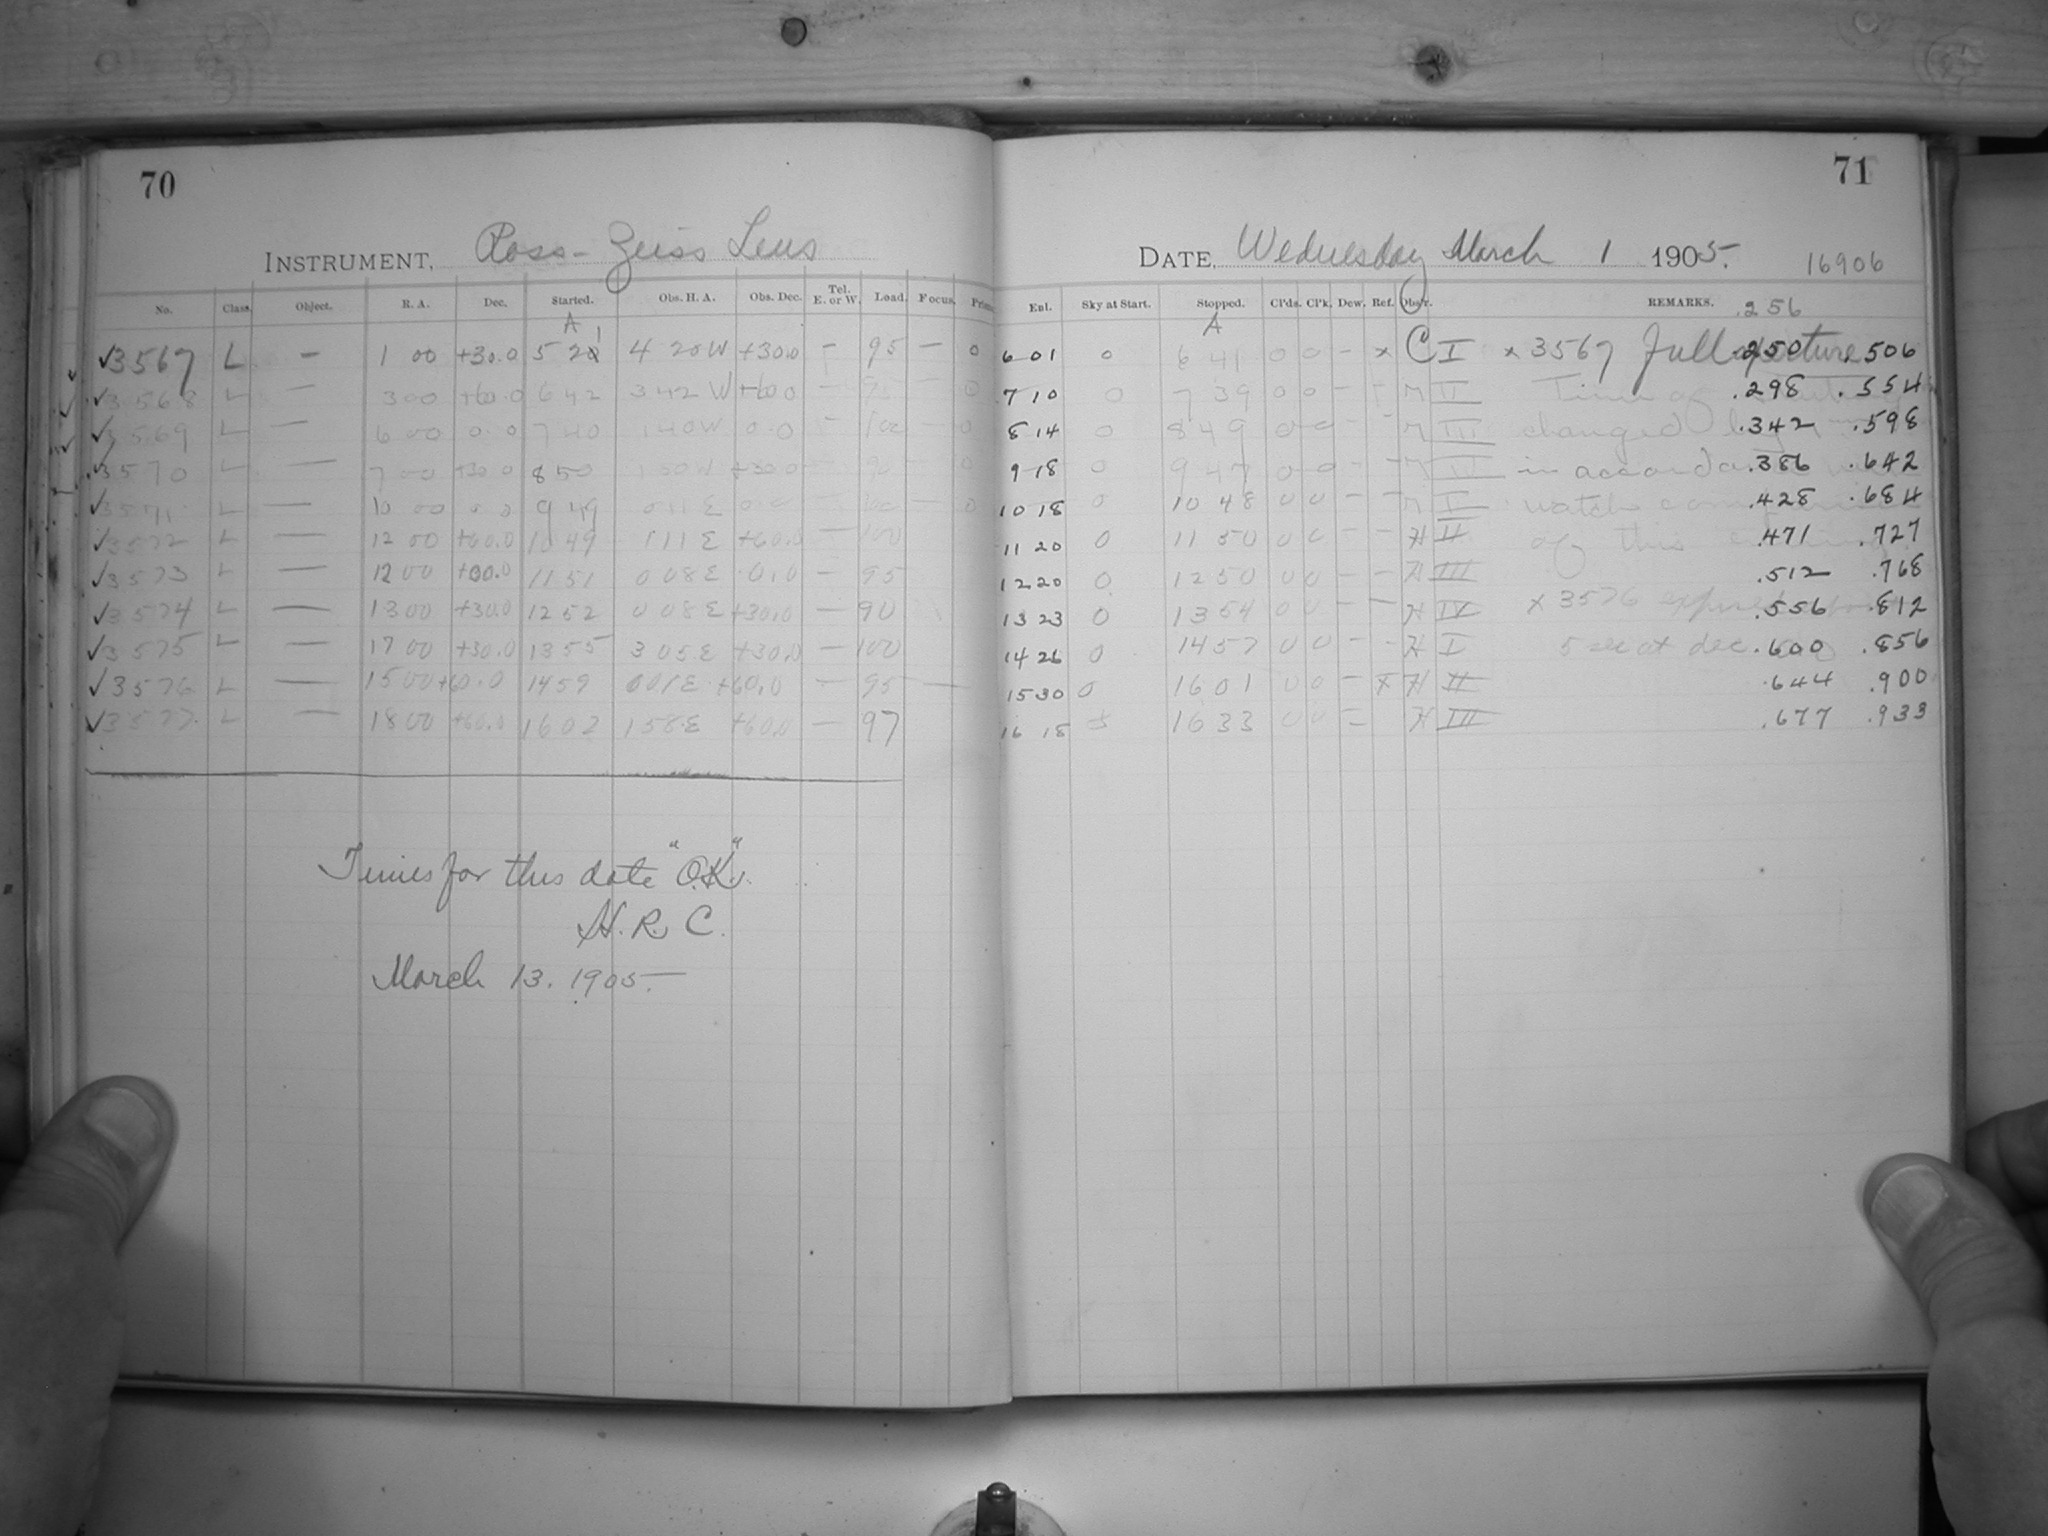 70
INSTRUMENT, Ross-Zeiss Lens
No. Class. Object. R. A. Dec. Started. Obs. H. A. Obs. Dec. Tel. E. or W. Load. Focus.
A
√3567 L — 1 00 +30.0 5 21 4 20W +30.0 — 95 — 0
√3568 L — 3 00 +60.0 6 42 3 42 W +60.0 — 95 — 0
√3569 L — 6 00 0.0 7 40 1 40W 0.0 — 100 — 0
√3570 L — 7 00 +30.0 8 50 1 50W +30.0 — 90 — 0
√3571 L — 10 00 0.0 9 49 0 11 E 0.0 — 100 — 0
√3572 L — 12 00 +60.0 10 49 1 11 E +60.0 — 100
√3573 L — 12 00 +00.0 11 51 0 08 E 0.0 — 95
√3574 L — 13 00 +30.0 12 52 0 08 E +30.0 — 90
√3575 L — 17 00 +30.0 13 55 3 05 E +30.0 — 100
√3576 L — 15 00 +60.0 14 59 0 01 E +60.0 — 95 —
√3577 L — 18 00 +60.0 16 02 1 58 E +60.0 — 97
Times for this date "O.K".
H. R. C.
March 13. 1905.
71
DATE, Wednesday March 1 1905. 16906
Ent. Sky at Start. Stopped. Cl'ds. Cl'k. Dew. Ref. Obs'r. REMARKS. .256
A
6 01 0 6 41 0 0 — x C I x 3567 Full aperture .250 .506
7 10 0 7 39 0 0 — — M II Time of .298 .554
8 14 0 8 49 0 0 — — M III changed .342 .598
9 18 0 9 47 0 0 — — M IV in .386 .642
10 18 0 10 48 0 0 — — M I watch .428 .684
11 20 0 11 50 0 0 — — H II of this .471 .727
12 20 0 12 50 0 0 — — H III .512 .768
13 23 0 13 54 0 0 — — H IV x 3576 .556 .812
14 26 0 14 57 0 0 — — H I 5 sec at dec. .600 .856
15 30 0 16 01 0 0 — x H II .644 .900
16 18 16 33 0 0 — H III .677 .933